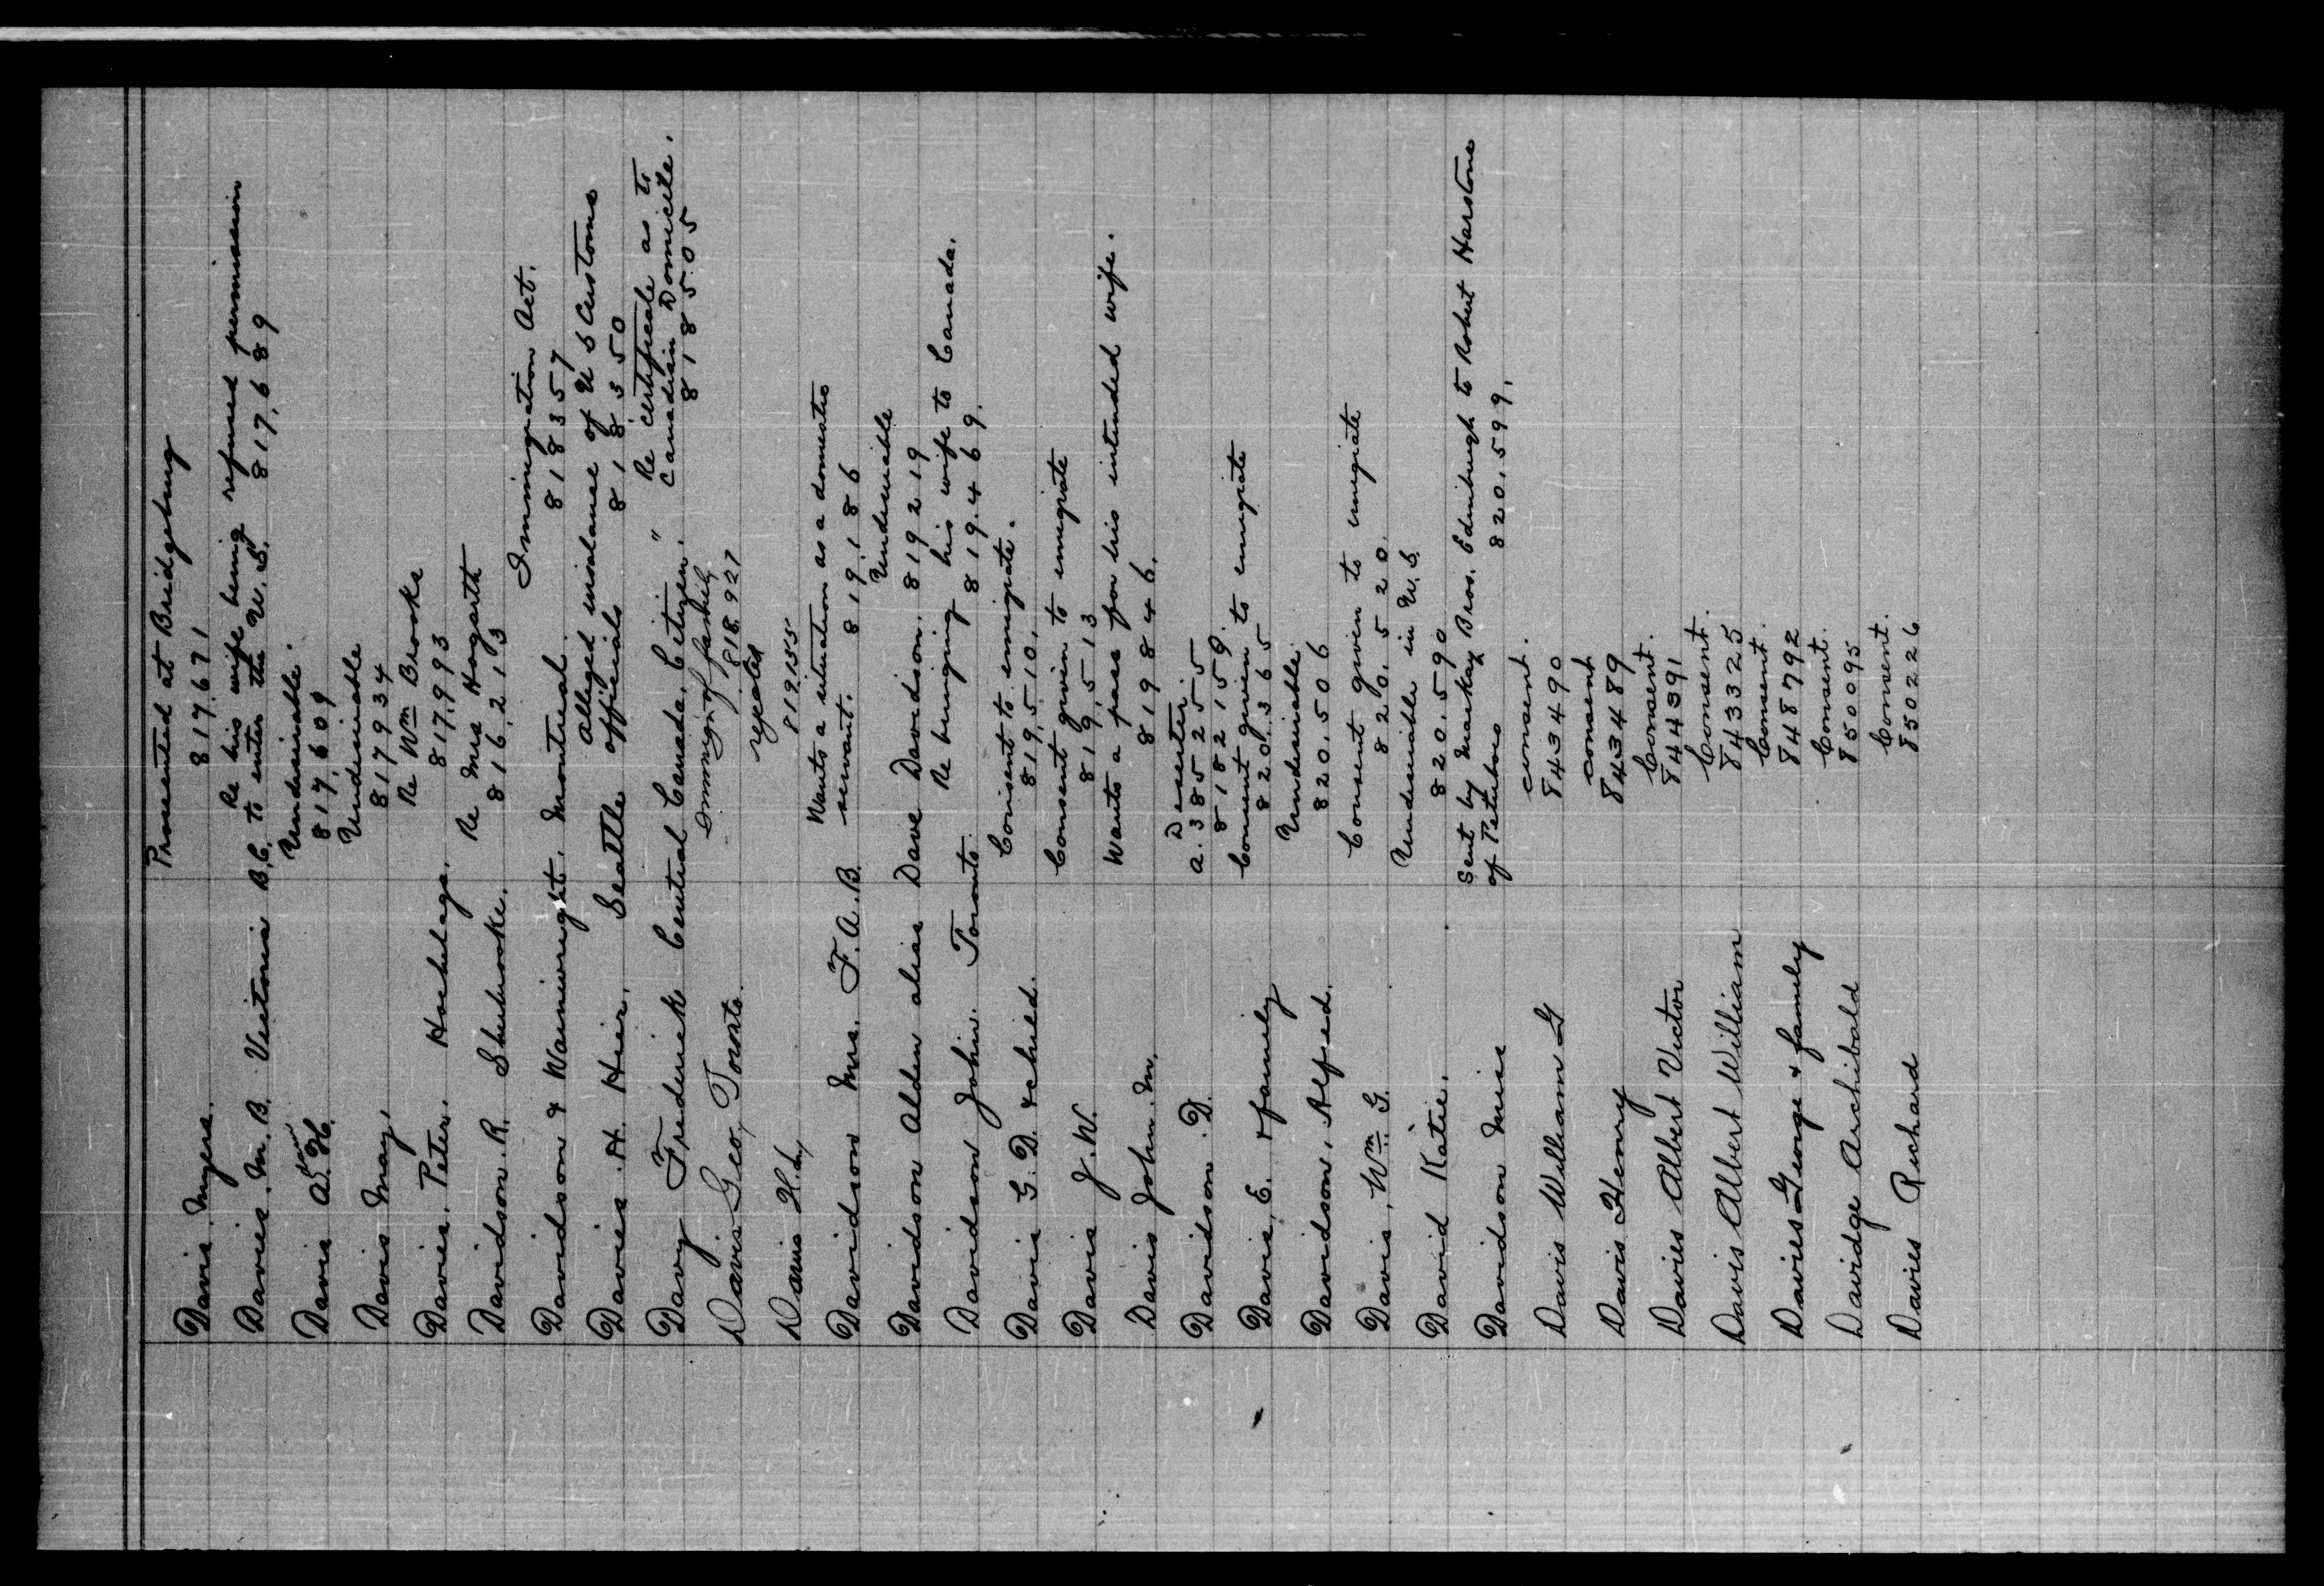 Prosecuted at Bridgeburg
Davis. Myers. 817.671
Re his wife being refused permission
Davies. M. B. Victoria B.C. to enter the U.S. 817.689
Undesirable.
Davis A. H. 817.609
Undesirable
Davis May, 817934
Re Wm Brooke
Davies. Peter. Hochelaga. 817.993
Re Mrs Hogarth
Davidson. R. Sherbrooke. 816.213
Immigration Act.
Davidson & Wainwright. Montreal. 818357
Alleged insolence of U S Customs
Davies. H. Hier. Seattle officials 818.350
Re certificate as to
Davy Frederick Central Canada. Citizen. " Canadian Domicile.
818505
Immig'n of family
Davis Geo, Toronto. 818.927
rejected
Davis H. L, 819155
Wants a situation as a domestic
Davidson Mrs. F. A. B. servant. 819.186
Undesirable
Davidson Alden alias Dave Davidson. 819219
Re bringing his wife to Canada.
Davidson John. Toronto. 819.469.
Consent to emigrate.
Davis G. D. & child. 819.510.
Consent given to emigrate
Davis J. W. 819.513
Wants a pass for his intended wife.
Davis John. M. 819846.
Deserter.
Davidson. D. a. 385255
8182159.
Consent given to emigrate
Davis, E. & family 820.365
Undesirable.
Davidson, Alfred. 820.506
Consent given to emigrate
Davis, Wm. G. 820.520.
Undesirable in U.S.
David Katie. 820.590
Sent by Mackay Bros. Edinburgh to Robert Harstone
Davidson Miss of Peterboro 820.599.
consent.
Davis William G 843490
consent
Davis Henry 843489
Consent.
Davies Albert Victor 844391
Consent.
Davis Albert William 843325
Consent.
Davies George & family 848792
Consent.
Davidge Archibald 850095
Consent.
Davies Richard 850226